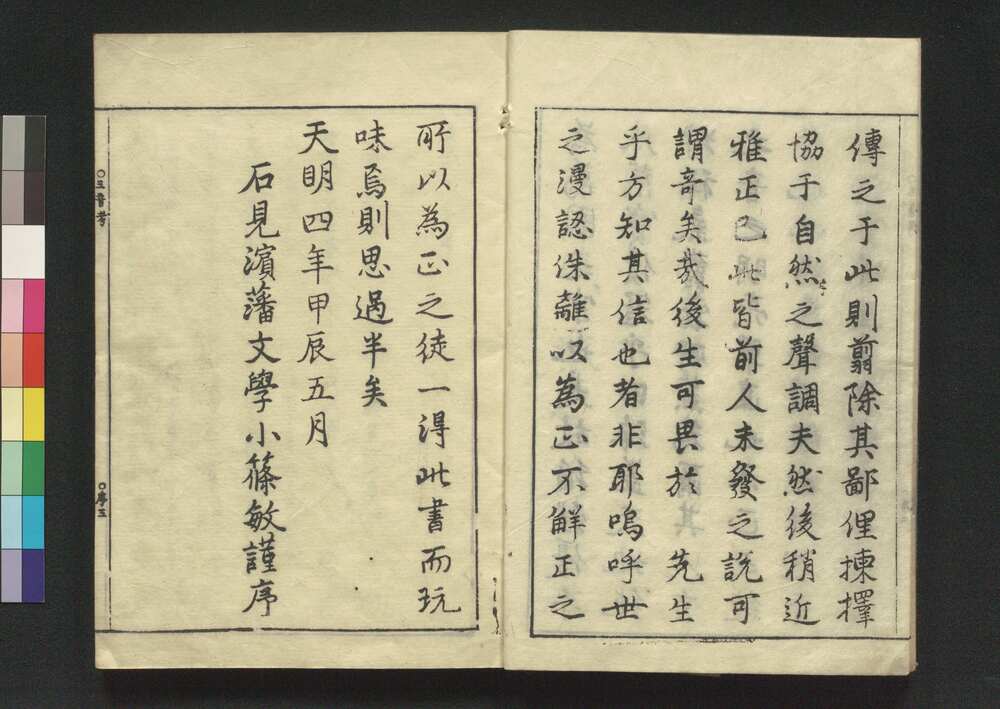 傳之于此則翦除其鄙俚揀擇
協于自然之聲調夫然後稍近
雅正已此皆前人未發之説可
謂奇矣哉後生可畏於先生
乎方知其信也者非耶嗚呼世
之漫認侏離以為正不解正之
所以為正之徒一得此書而玩
味焉則思過半矣
天明四年甲辰五月
石見濱藩文學小篠敏謹序
○三音考
○序三